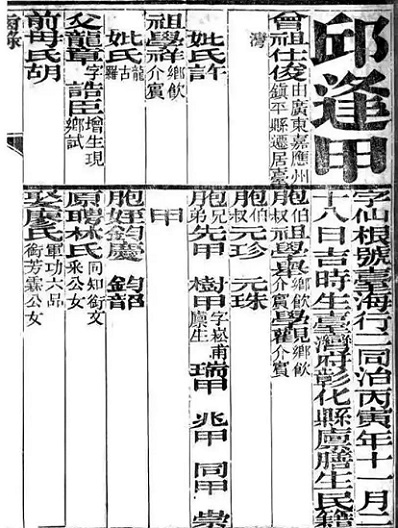 邱逢甲
曾祖仕俊由廣東嘉應州鎮平縣遷居臺灣
妣氏許
祖學祥鄉飲介賓
妣氏古羅
父龍章字誥臣增生現鄉試
前母氏胡
錄
字仙根號臺海行二同治丙寅年十一月二
十八日吉時生臺灣府彰化縣廩膳生民籍
胞伯叔祖學鄉飲介賓鄉飲介賓
胞伯叔元珍 元珠
胞兄弟先甲 樹甲字崧甫廩生 瑞甲 兆甲 同甲 崇
甲
胞姪鈞慶 鈞韶
原聘林氏同知銜文公女
娶廖氏軍功六品銜芳霖公女